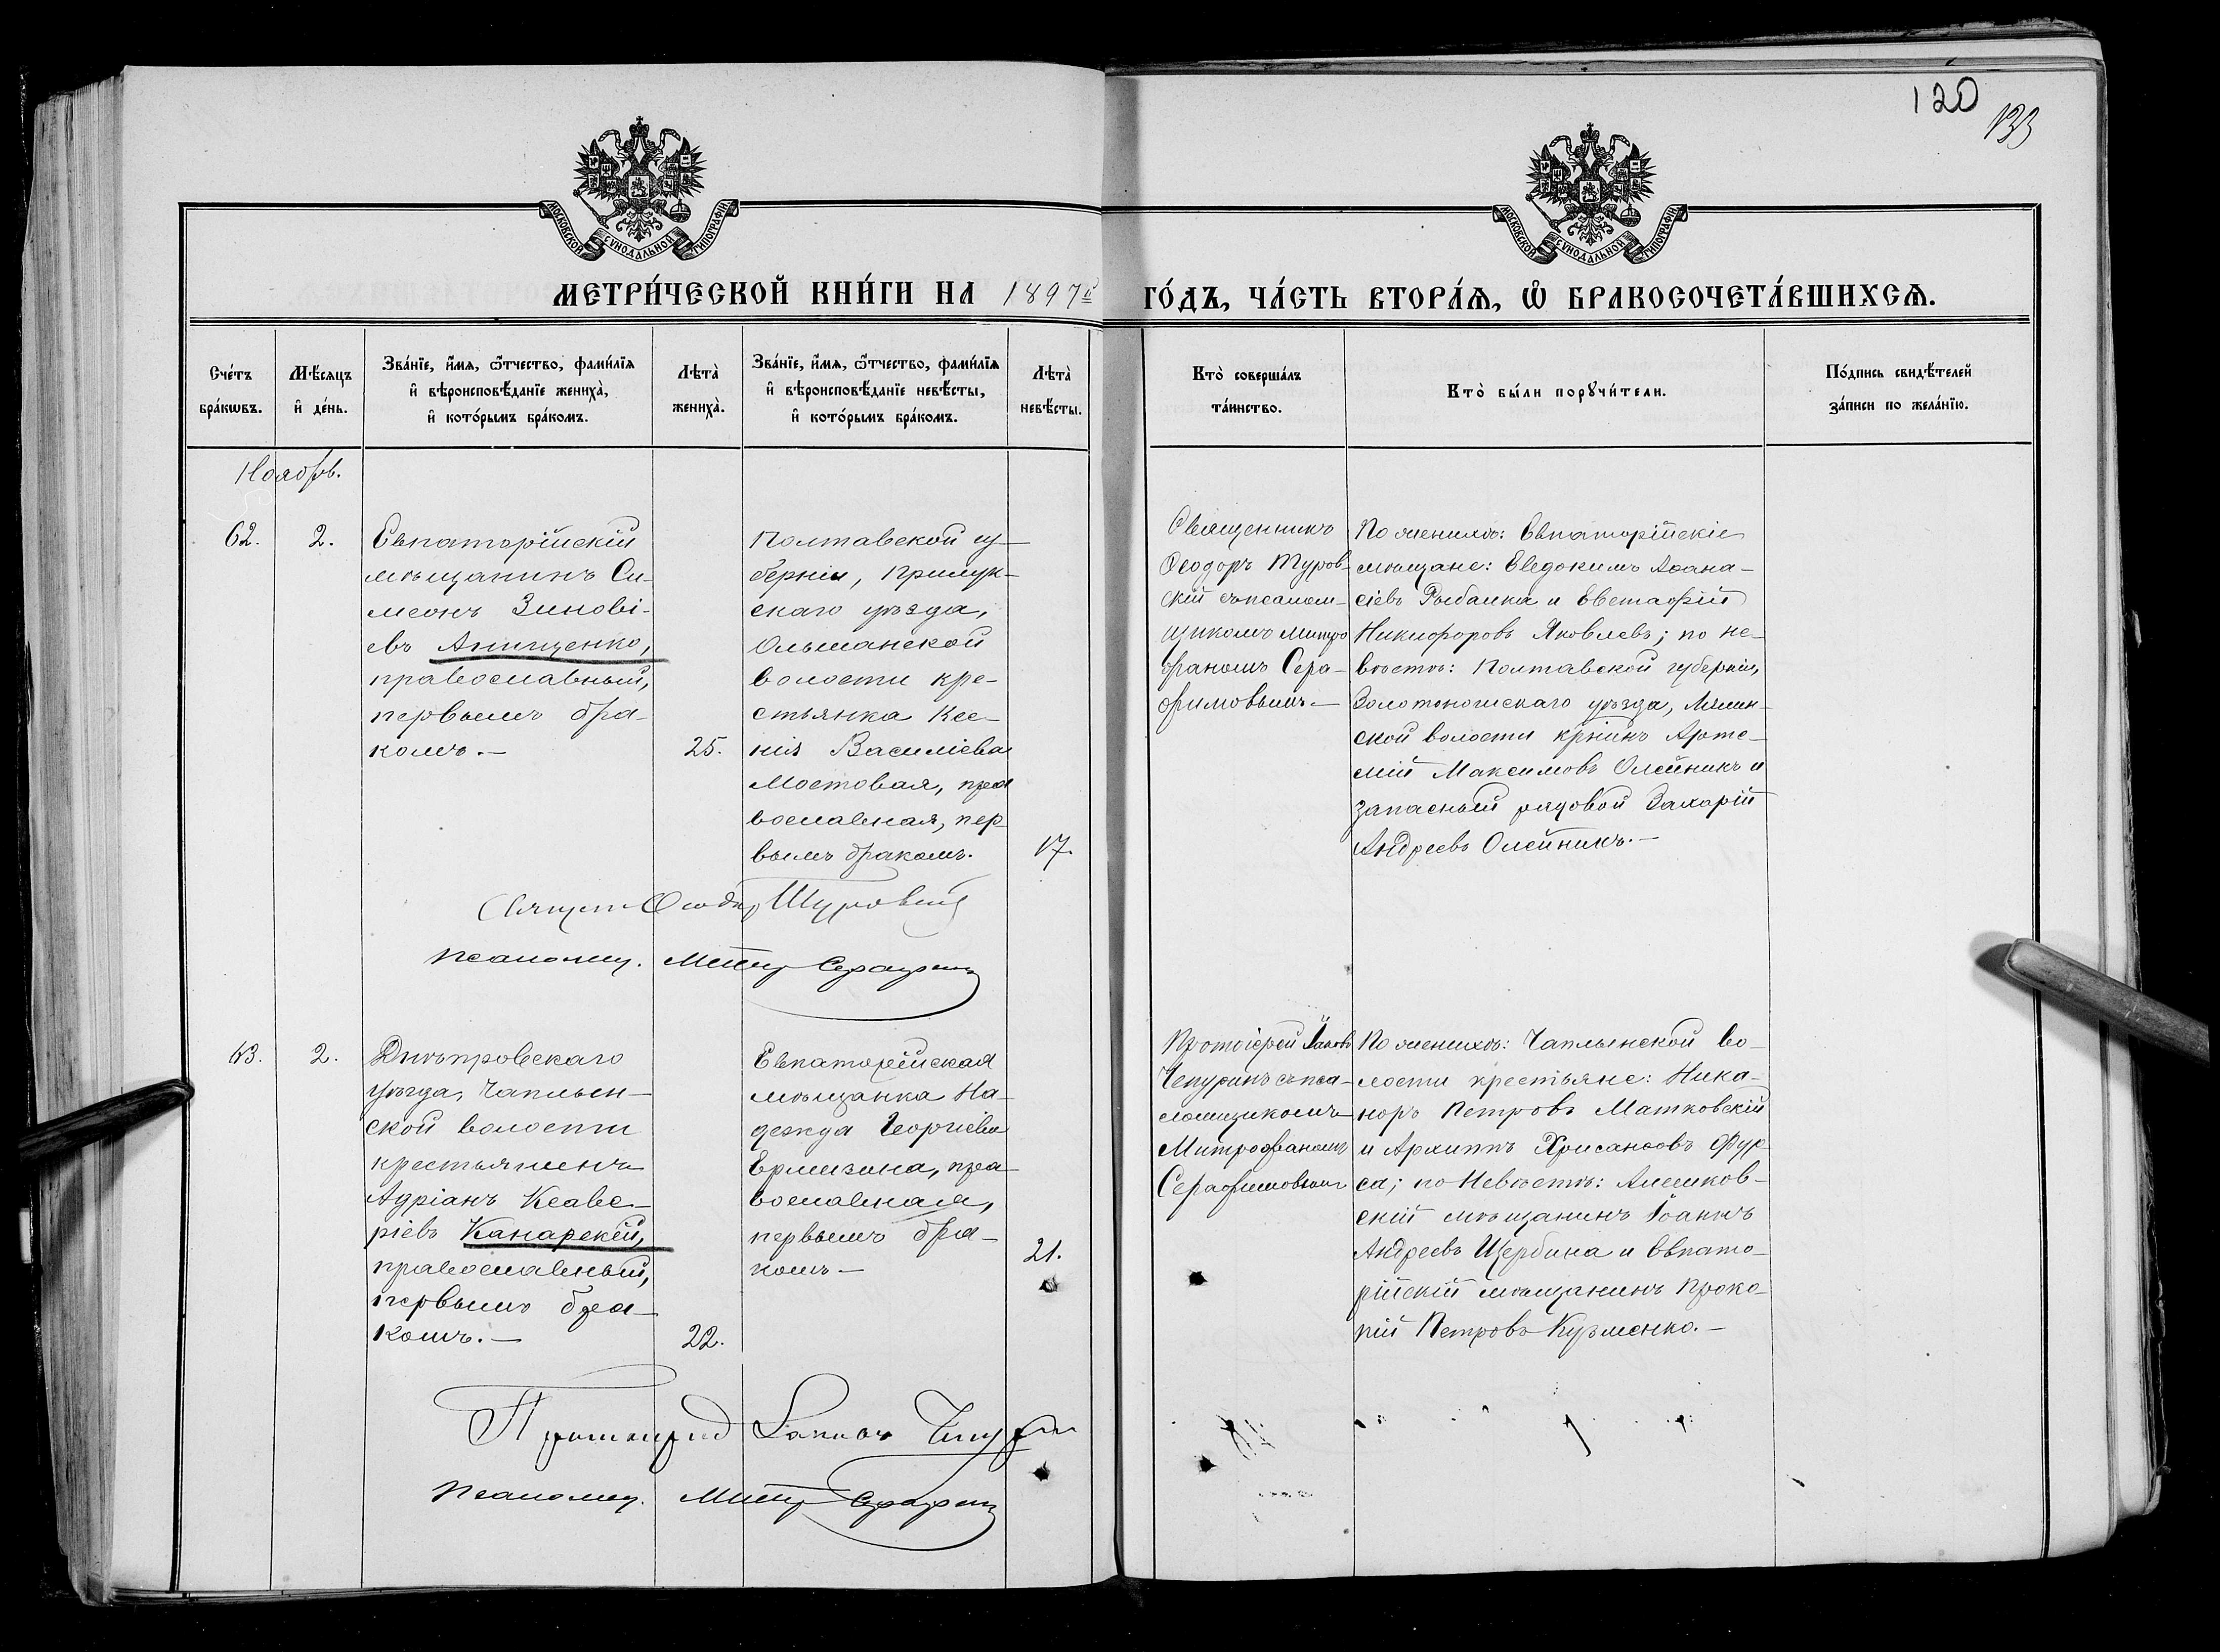 120
133
МОСКОВСКОЙ СѴНОДАЛЬНОЙ ТИПОГРАФІИ
МОСКОВСКОЙ СѴНОДАЛЬНОЙ ТИПОГРАФІИ
МЕТРИ́ЧЕСКОЙ КНИ́ГИ НА 1897й ГО́ДЪ, ЧА́СТЬ ВТОРА́Я, Ѡ БРАКОСОЧЕТА́ВШИХСЯ.
Сче́тъ
бра́кѡвъ.
Мѣ́сяцъ
и҆ де́нь.
Зва́нїе, и҆́мя, ѻ҆́тчество, фами́лїя
и҆ вѣроисповѣ́данїе жениха̀,
и҆ кото́рымъ бра́комъ.
Лѣта̀
жениха̀.
Зва́нїе, и҆́мя, ѻ҆́тчество, фами́лїя
и҆ вѣроисповѣ́данїе невѣ́сты,
и҆ кото́рымъ бра́комъ.
Лѣта̀
невѣ́сты.
Кто̀ соверша́лъ
та́инство.
Кто̀ бы́ли порꙋчи́тели.
По́дпись свидѣ́телей
за́писи по жела́нїю.
Ноябрь.
62.
2.
Евпаторійскій
мѣщанинъ Си-
меонъ Зиновi-
евъ Анищенко,
православный,
первымъ бра-
комъ.—
25.
Полтавской гу-
берніи, Прилук-
скаго уѣзда,
Ольшанской
волости кре-
стьянка Ксе-
нія Василіева
Мостовая, пра
вославная, пер-
вымъ бракомъ.
17.
Священникъ
Ѳеодоръ Туров-
скій съ псалом-
щикомъ Митро
фаномъ Сера-
фимовымъ.—
По женихѣ: Евпаторійскіе
мѣщане: Евдокимъ Аѳана-
сіевъ Рыбалка и Евстафій
Никифоровъ Яковлевъ; по не-
вѣстѣ: Полтавской губерніи,
Золотоношскаго уѣзда, Лялин-
ской волости кр҃нинъ Арте-
мій Максимовъ Олейникъ и
запасный рядовой Захарій
Андреевъ Олейникъ.—
Священ Ѳеодоръ Туровскій
Псаломщ. Митр Серафим
63.
2.
Днѣпровскаго
уѣзда, Чаплын-
ской волости
крестьянинъ
Адріанъ Ксаве-
ріевъ Канарскій,
православный,
первымъ бра-
комъ.—
22.
Евпаторійская
мѣщанка На-
дежда Георгіева
Ермизина, пра-
вославная,
первымъ бра-
комъ—
21.
Протоіерей Іаковъ
Чепуринъ съ пса-
ломщикомъ
Митрофаномъ
Серафимовымъ
По женихѣ: Чаплынской во-
лости крестьяне: Ника-
норъ Петровъ Матковскій
и Архиппъ Хрисанѳовъ Фур-
са; по Невѣстѣ: Алешков-
скій мѣщанинъ Іоаннъ
Андреевъ Щербина и Евпато-
рійскій мѣщанинъ Проко-
пій Петровъ Кузменко.—
Протоіерей Іаковъ Чепурин
Псаломщ. Митр Серафим